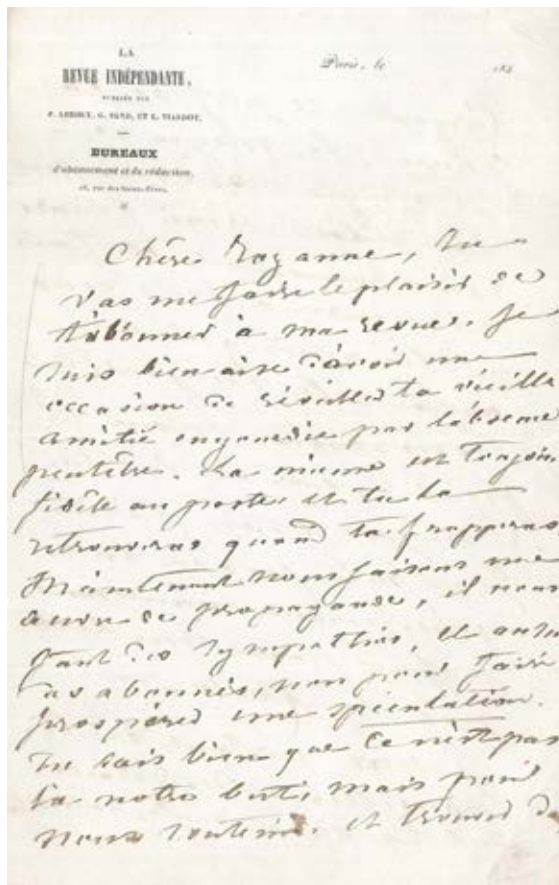 LA
REVUE INDÉPENDANTE,
PUBLIÉE PAR
P. LEROUX, G. SAND, ET L. VIARDOT.
BUREAUX
d'abonnement et de rédaction,
16, rue des Saints-Pères.
Paris, le 184
Chère Rozanne, tu
vas me faire le plaisir de
t'abonner à ma revue. Je
suis bien aise d'avoir une
occasion de réveiller ta vieille
amitié engourdie par l'absence
peutêtre. La mienne est toujours
fidèle au poste et tu la
retrouveras quand tu frapperas
Maintenant nous faisons une
œuvre de propagande, il nous
faut des sympathies, et
des abonnés, non pour faire
prospérer une spéculation.
Tu sais bien que ce n'est pas
là notre but, mais pour
nous soutenir et trouver de